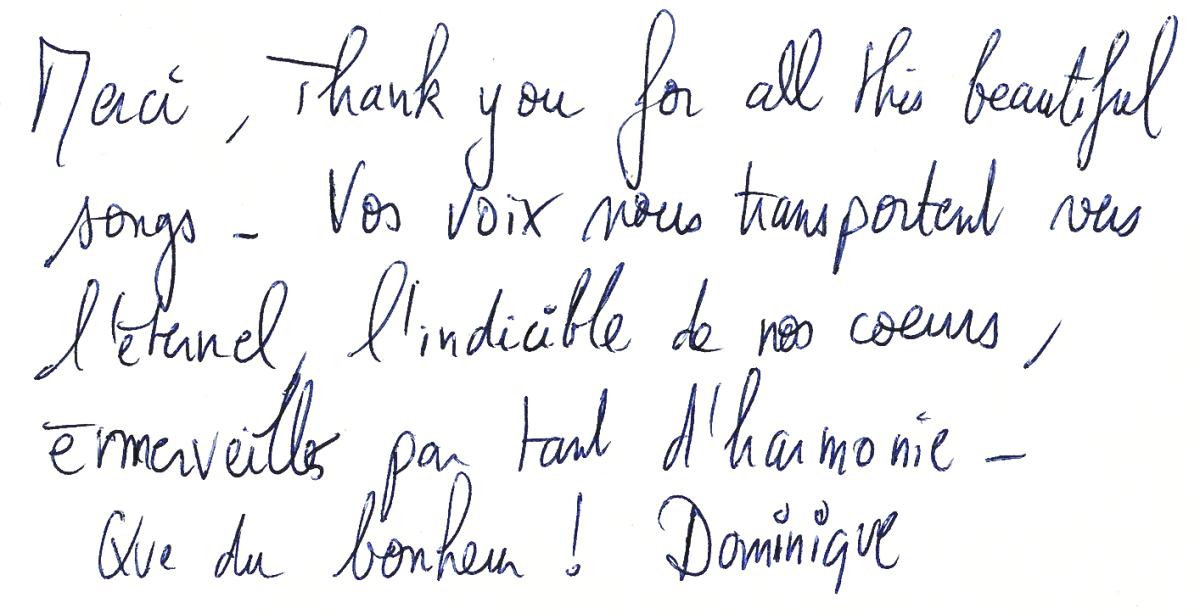 Merci, Thank you for all this beautiful
songs - Vos voix nous transportent vers
l'éternel, l'indicible de nos coeurs,
émerveillés par tant d'harmonie -
Que du bonheur ! Dominique